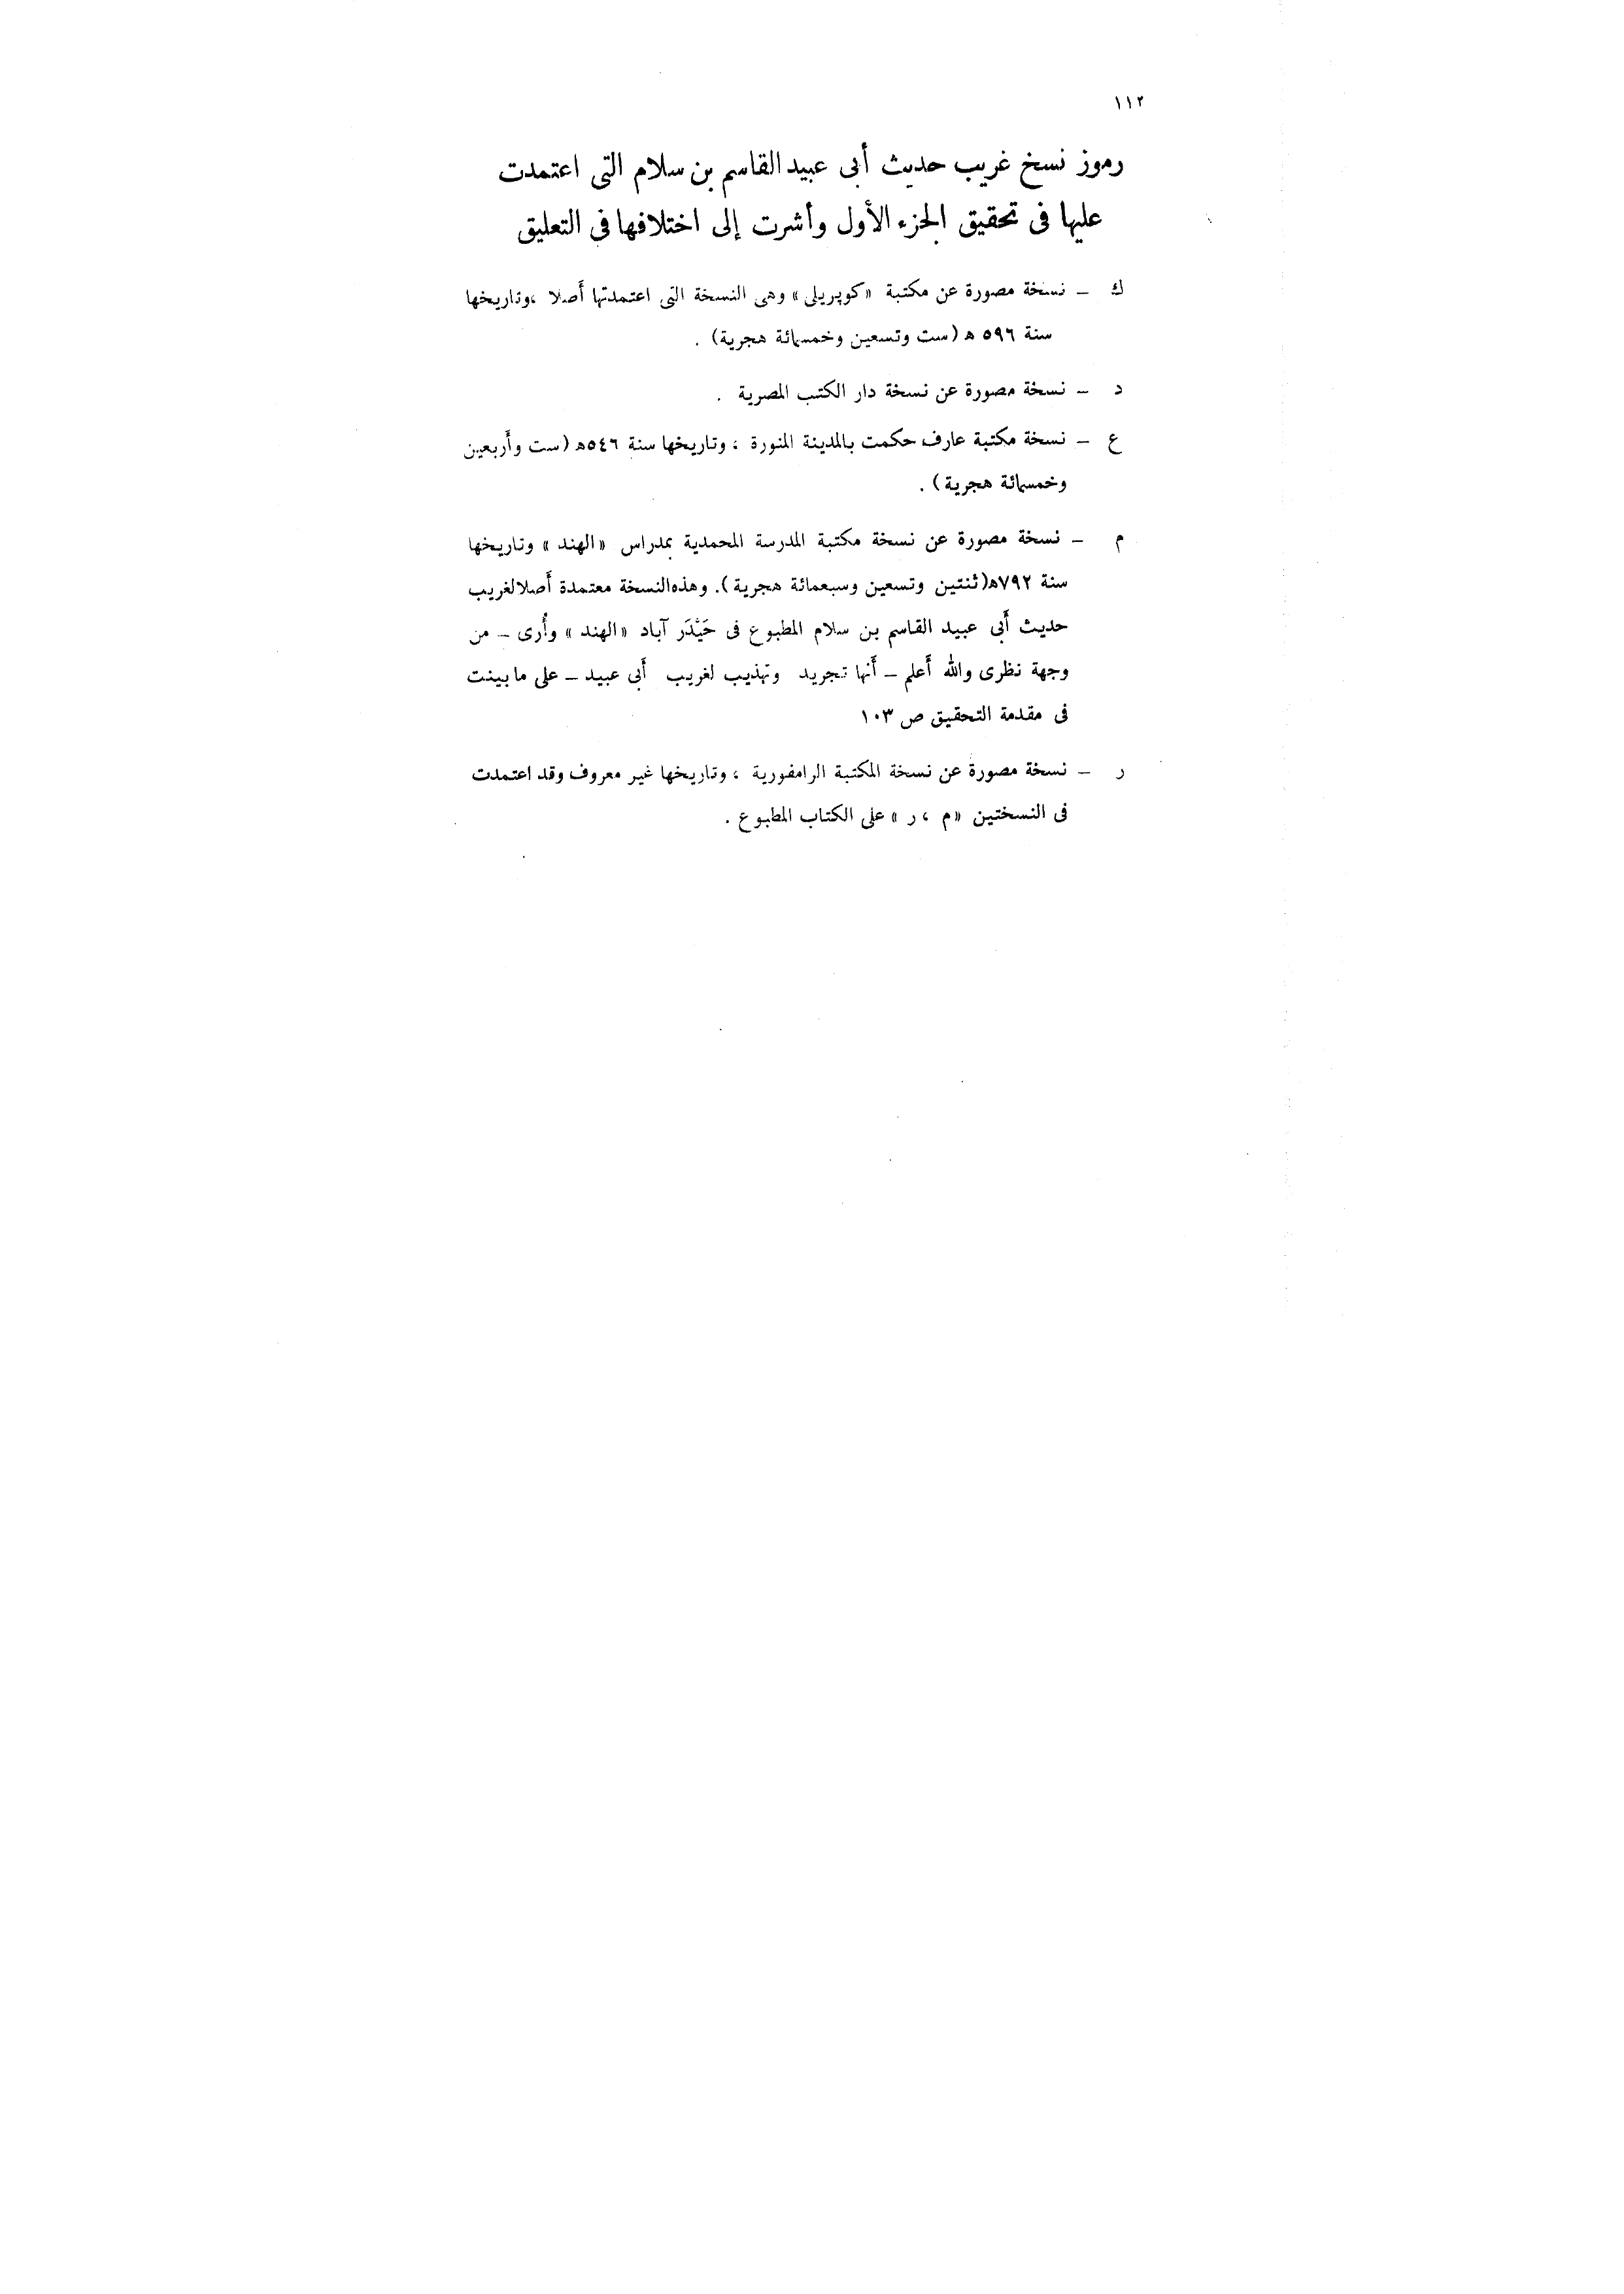 ١١٢
رموز نسخ غريب حديث أبى عبيد القاسم بن سلام التى اعتمدت
عليها فى تحقيق الجزء الأول وأشرت إلى اختلافها فى التعليق
ك – نسخة مصورة عن مكتبة «كوپريلى» وهى النسخة التى اعتمدتها أصلا ، وتاريخها
سنة ٥٩٦ ه (ست وتسعين وخمسمائة هجرية) .
د – نسخة مصورة عن نسخة دار الكتب المصرية .
ع – نسخة مكتبة عارف حكمت بالمدينة المنورة ، وتاريخها سنة ٥٤٦ه (ست وأربعين
وخمسمائة هجرية) .
م – نسخة مصورة عن نسخة مكتبة المدرسة المحمدية بمدراس «الهند» وتاريخها
سنة ٧٩٢ه (ثنتين وتسعين وسبعمائة هجرية). وهذه النسخة معتمدة أصلا لغريب
حديث أبى عبيد القاسم بن سلام المطبوع فى حَيْدَر آباد «الهند» وأرى – من
وجهة نظرى والله أعلم – أنها تجريد وتهذيب لغريب أبى عبيد – على ما بينت
فى مقدمة التحقيق ص ١٠٣
ر – نسخة مصورة عن نسخة المكتبة الرامفورية ، وتاريخها غير معروف وقد اعتمدت
فى النسختين «م ، ر» على الكتاب المطبوع .